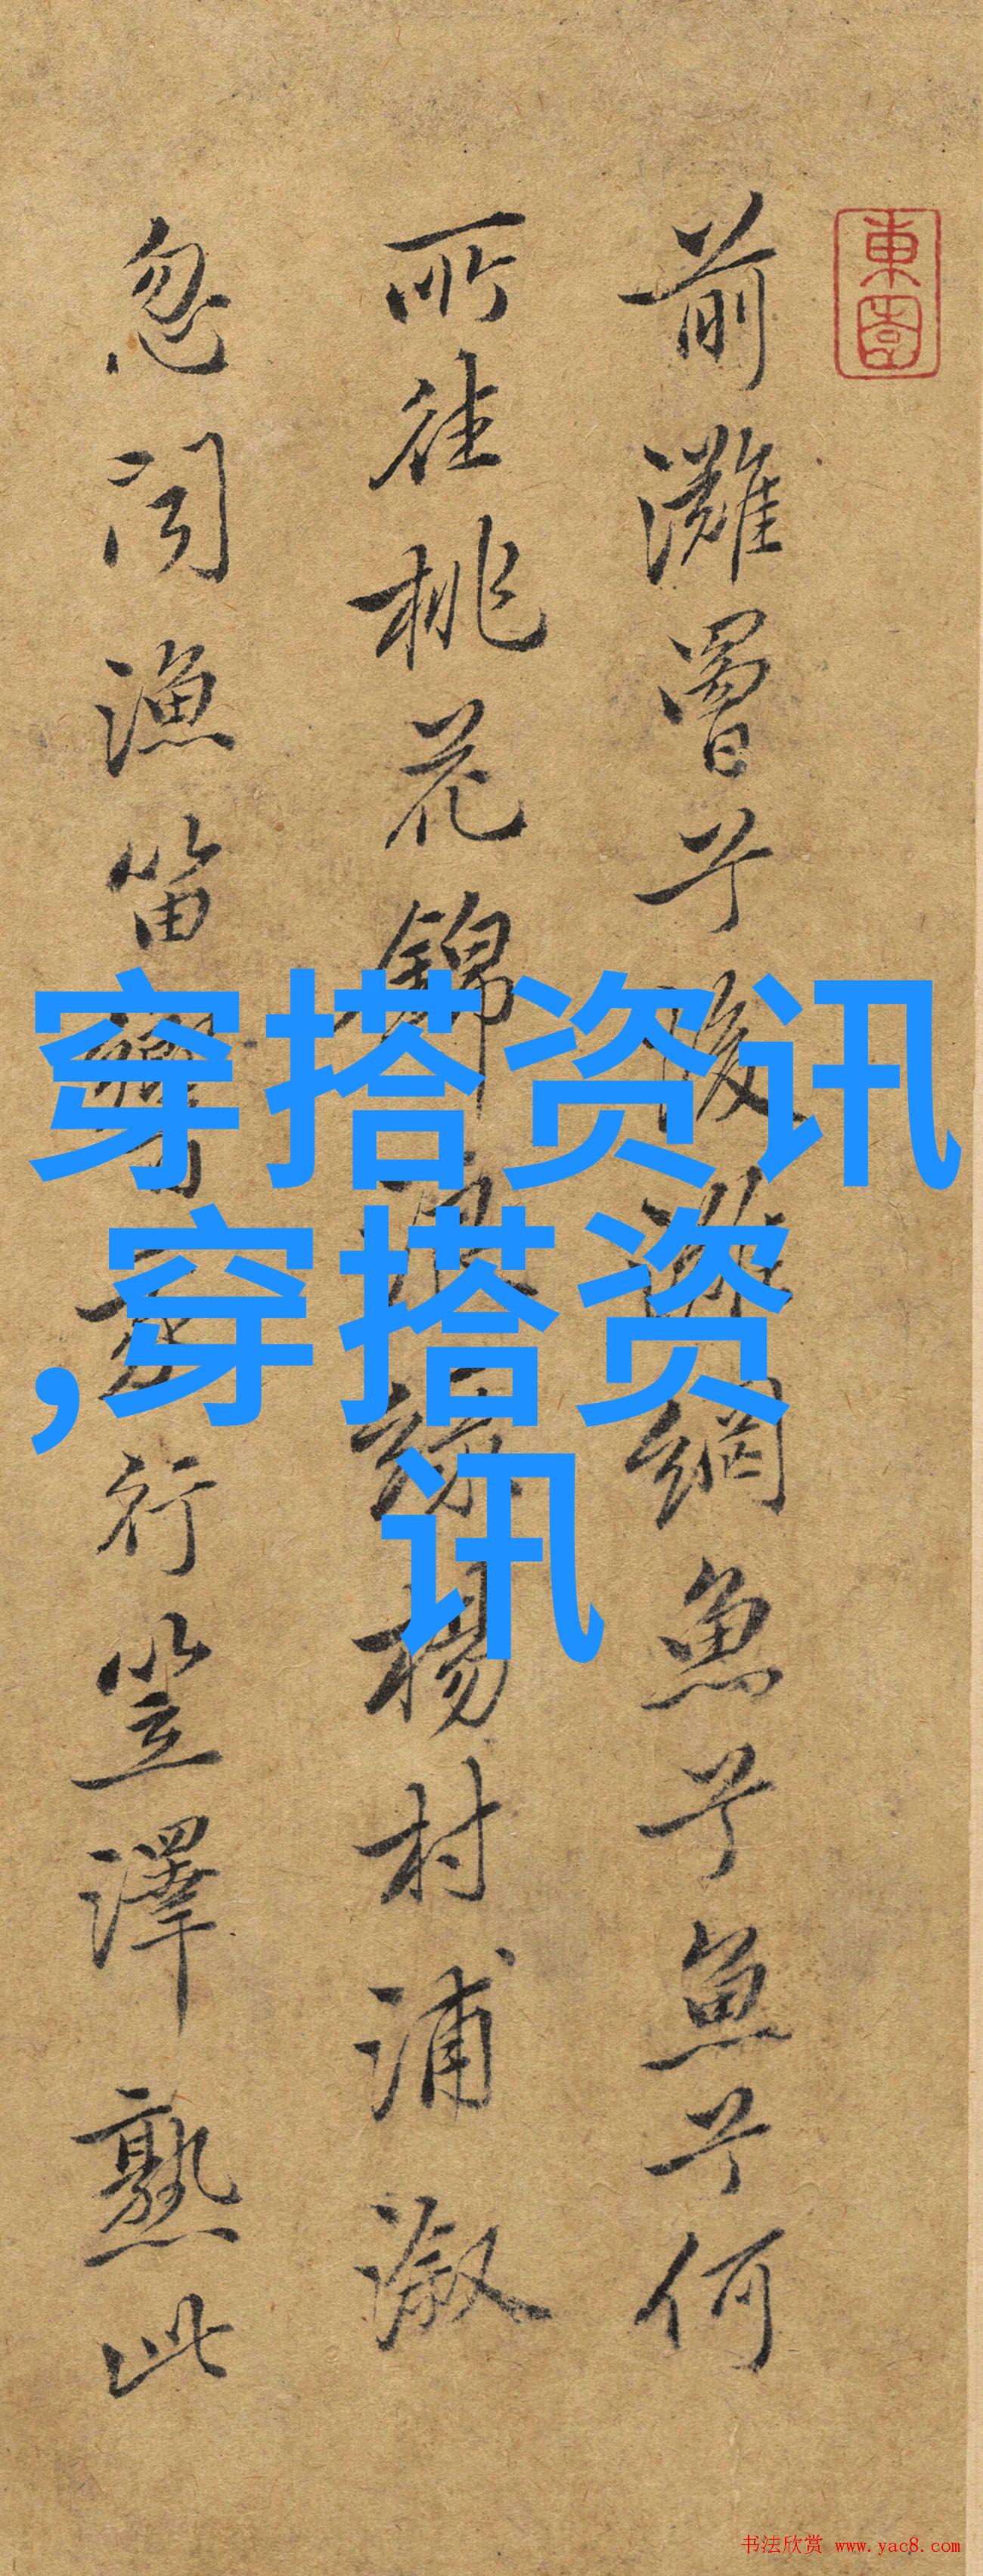 東園
前灘罾兮後灘網魚兮魚兮何
所往桃花錦浪綠楊村浦溆
忽聞漁笛響行笠澤熟此
穿搭资讯
,穿搭资
讯
书法欣赏 www.yac8.com